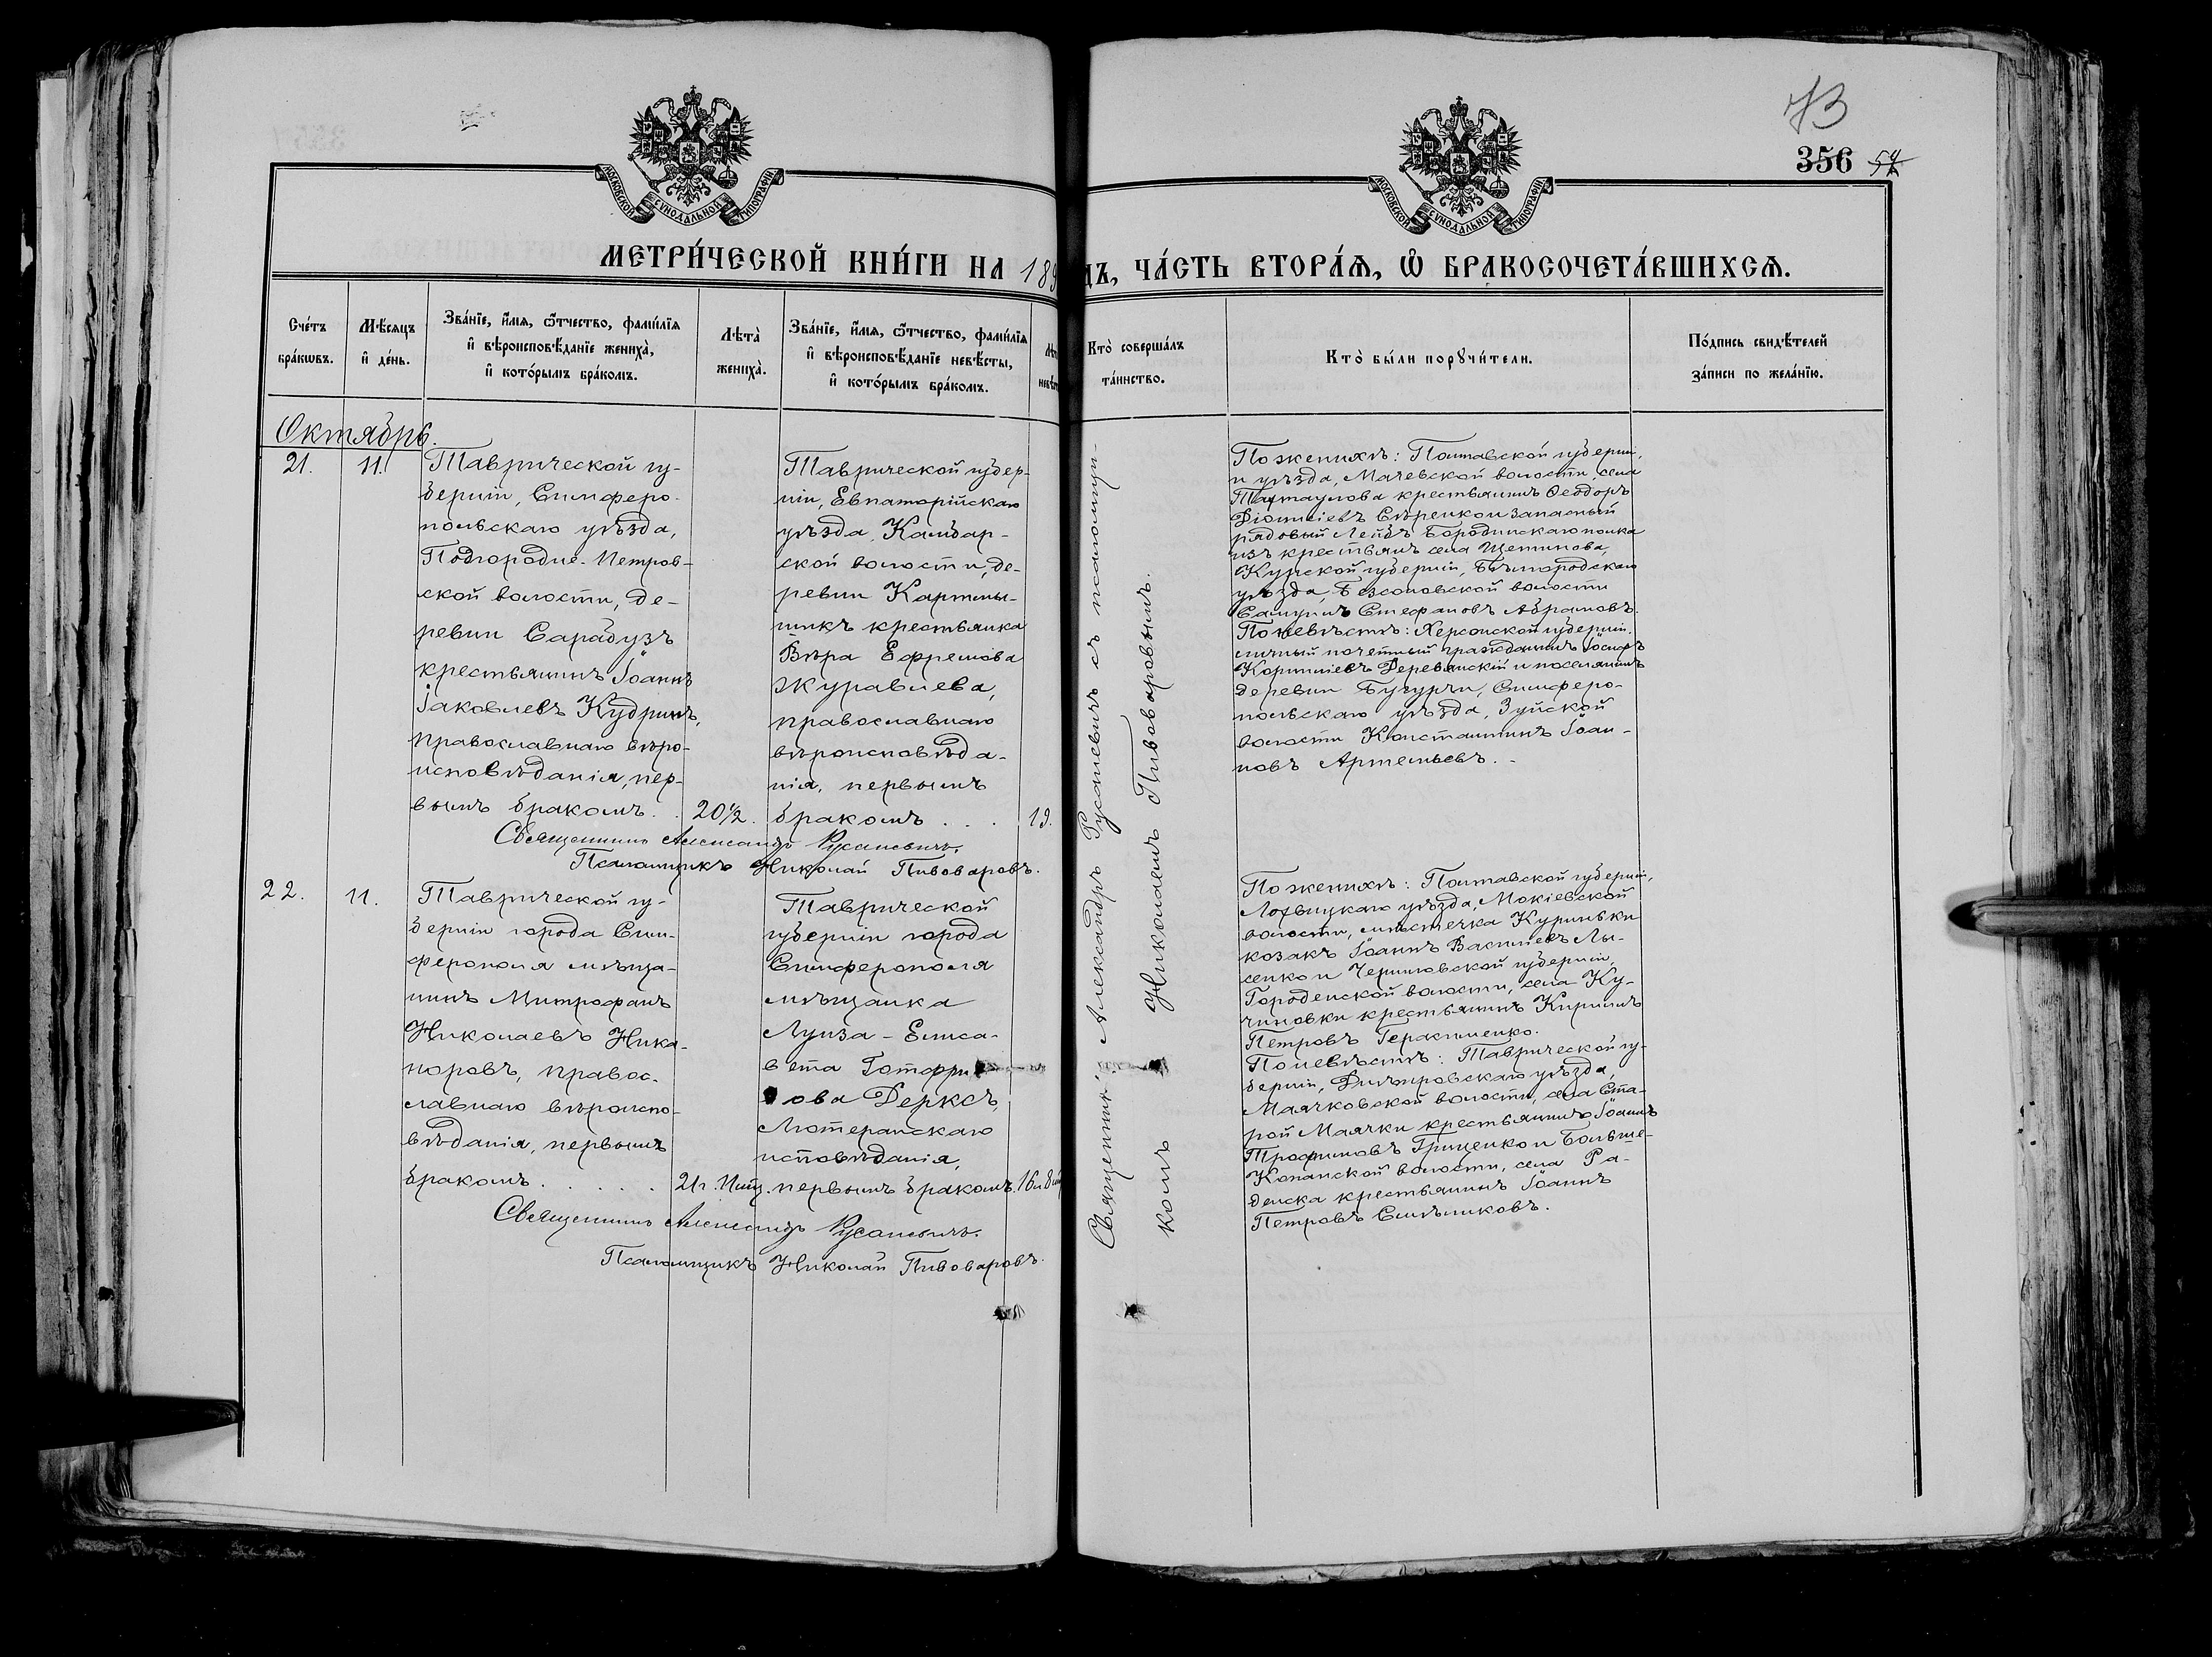 73
356 54
МОСКОВСКОЙ СѴНОДАЛЬНОЙ ТИПОГРАФІИ
МОСКОВСКОЙ СѴНОДАЛЬНОЙ ТИПОГРАФІИ
МЕТРИ́ЧЕСКОЙ КНИ́ГИ НА 189
ДЪ, ЧА́СТЬ ВТОРА́Ѧ, Ѽ БРАКОСОЧЕТА́ВШИХСѦ.
Сче́тъ бра́кѡвъ.
Мѣ́сѧцъ и҆ де́нь.
Зва́нїе, и҆́мѧ, ѻ҆́тчество, фами́лїѧ и҆ вѣроисповѣ́данїе жениха̀, и҆ кото́рымъ бра́комъ.
Лѣта̀ жениха̀.
Зва́нїе, и҆́мѧ, ѻ҆́тчество, фами́лїѧ и҆ вѣроисповѣ́данїе невѣ́сты, и҆ кото́рымъ бра́комъ.
Кто̀ соверша́лъ та́инство.
Кто̀ бы́ли порꙋчи́тели.
По́дпись свидѣ́телей за́писи по жела́нїю.
Октябрь.
21.
11.
Таврической гу-
берніи, Симферо-
польскаго уѣзда,
Подгородне-Петров-
ской волости, де-
ревни Сарабузъ
крестьянинъ Іоаннъ
Іаковлевъ Кудринъ,
православнаго вѣро-
исповѣданія, пер-
вымъ бракомъ. .
20½.
Таврической губер-
ніи, Евпаторійскаго
уѣзда, Камбар-
ской волости, де-
ревни
крестьянка
Вѣра Ефремова
Журавлева,
православнаго
вѣроисповѣда-
нія, первымъ
бракомъ . . .
19.
Священникъ Александръ Русаневичъ.
Псаломщикъ Николай Пивоваровъ.
Священникъ Александръ Русаневичъ съ псаломщи-
комъ Николаемъ Пивоваровымъ.
По женихѣ: Полтавской губерніи,
и уѣзда, Мачевской волости, села
крестьянинъ Ѳеодоръ
Діонисіевъ и запасный
рядовый Лейбъ Бородинскаго полка
изъ крестьянъ села Щетинова,
Курской губерніи, Бѣлгородскаго
уѣзда, Безсоновской волости
Самуилъ Стефановъ Абрамовъ.
По невѣстѣ: Херсонской губерніи
личный почетный гражданинъ Іосифъ
Корниліевъ Деревянскій и поселянинъ
деревни Бугурчи, Симферо-
польскаго уѣзда, Зуйской
волости Константинъ Іоан-
новъ Артемьевъ. -
22.
11.
Таврической гу-
берніи города Сим-
ферополя мѣща-
нинъ Митрофанъ
Николаевъ Ника-
норовъ, правос-
лавнаго вѣроиспо-
вѣданія, первымъ
бракомъ . . . . .
21 г.
Таврической
губерніи города
Симферополя
мѣщанка
Луиза-Елиса-
вета Готфри
ова Дерксъ,
Лютеранскаго
исповѣданія,
первымъ бракомъ.
Священникъ Александръ Русаневичъ.
Псаломщикъ Николай Пивоваровъ.
По женихѣ: Полтавской губерніи,
Лохвицкаго уѣзда, Мокіевской
волости, мѣстечка Куриньки
козакъ Іоаннъ Васильевъ Лы-
сенко и Черниговской губерніи,
Городенской волости, села Ку-
чиновки крестьянинъ Кириллъ
Петровъ Герасименко.
По невѣстѣ: Таврической гу-
берніи, Днѣпровскаго уѣзда,
Маячковской волости, села Ста-
рой Маячки крестьянинъ Іоаннъ
Трофимовъ Гриценко и Больше-
Копанской волости, села Ра-
денска крестьянинъ Іоаннъ
Петровъ